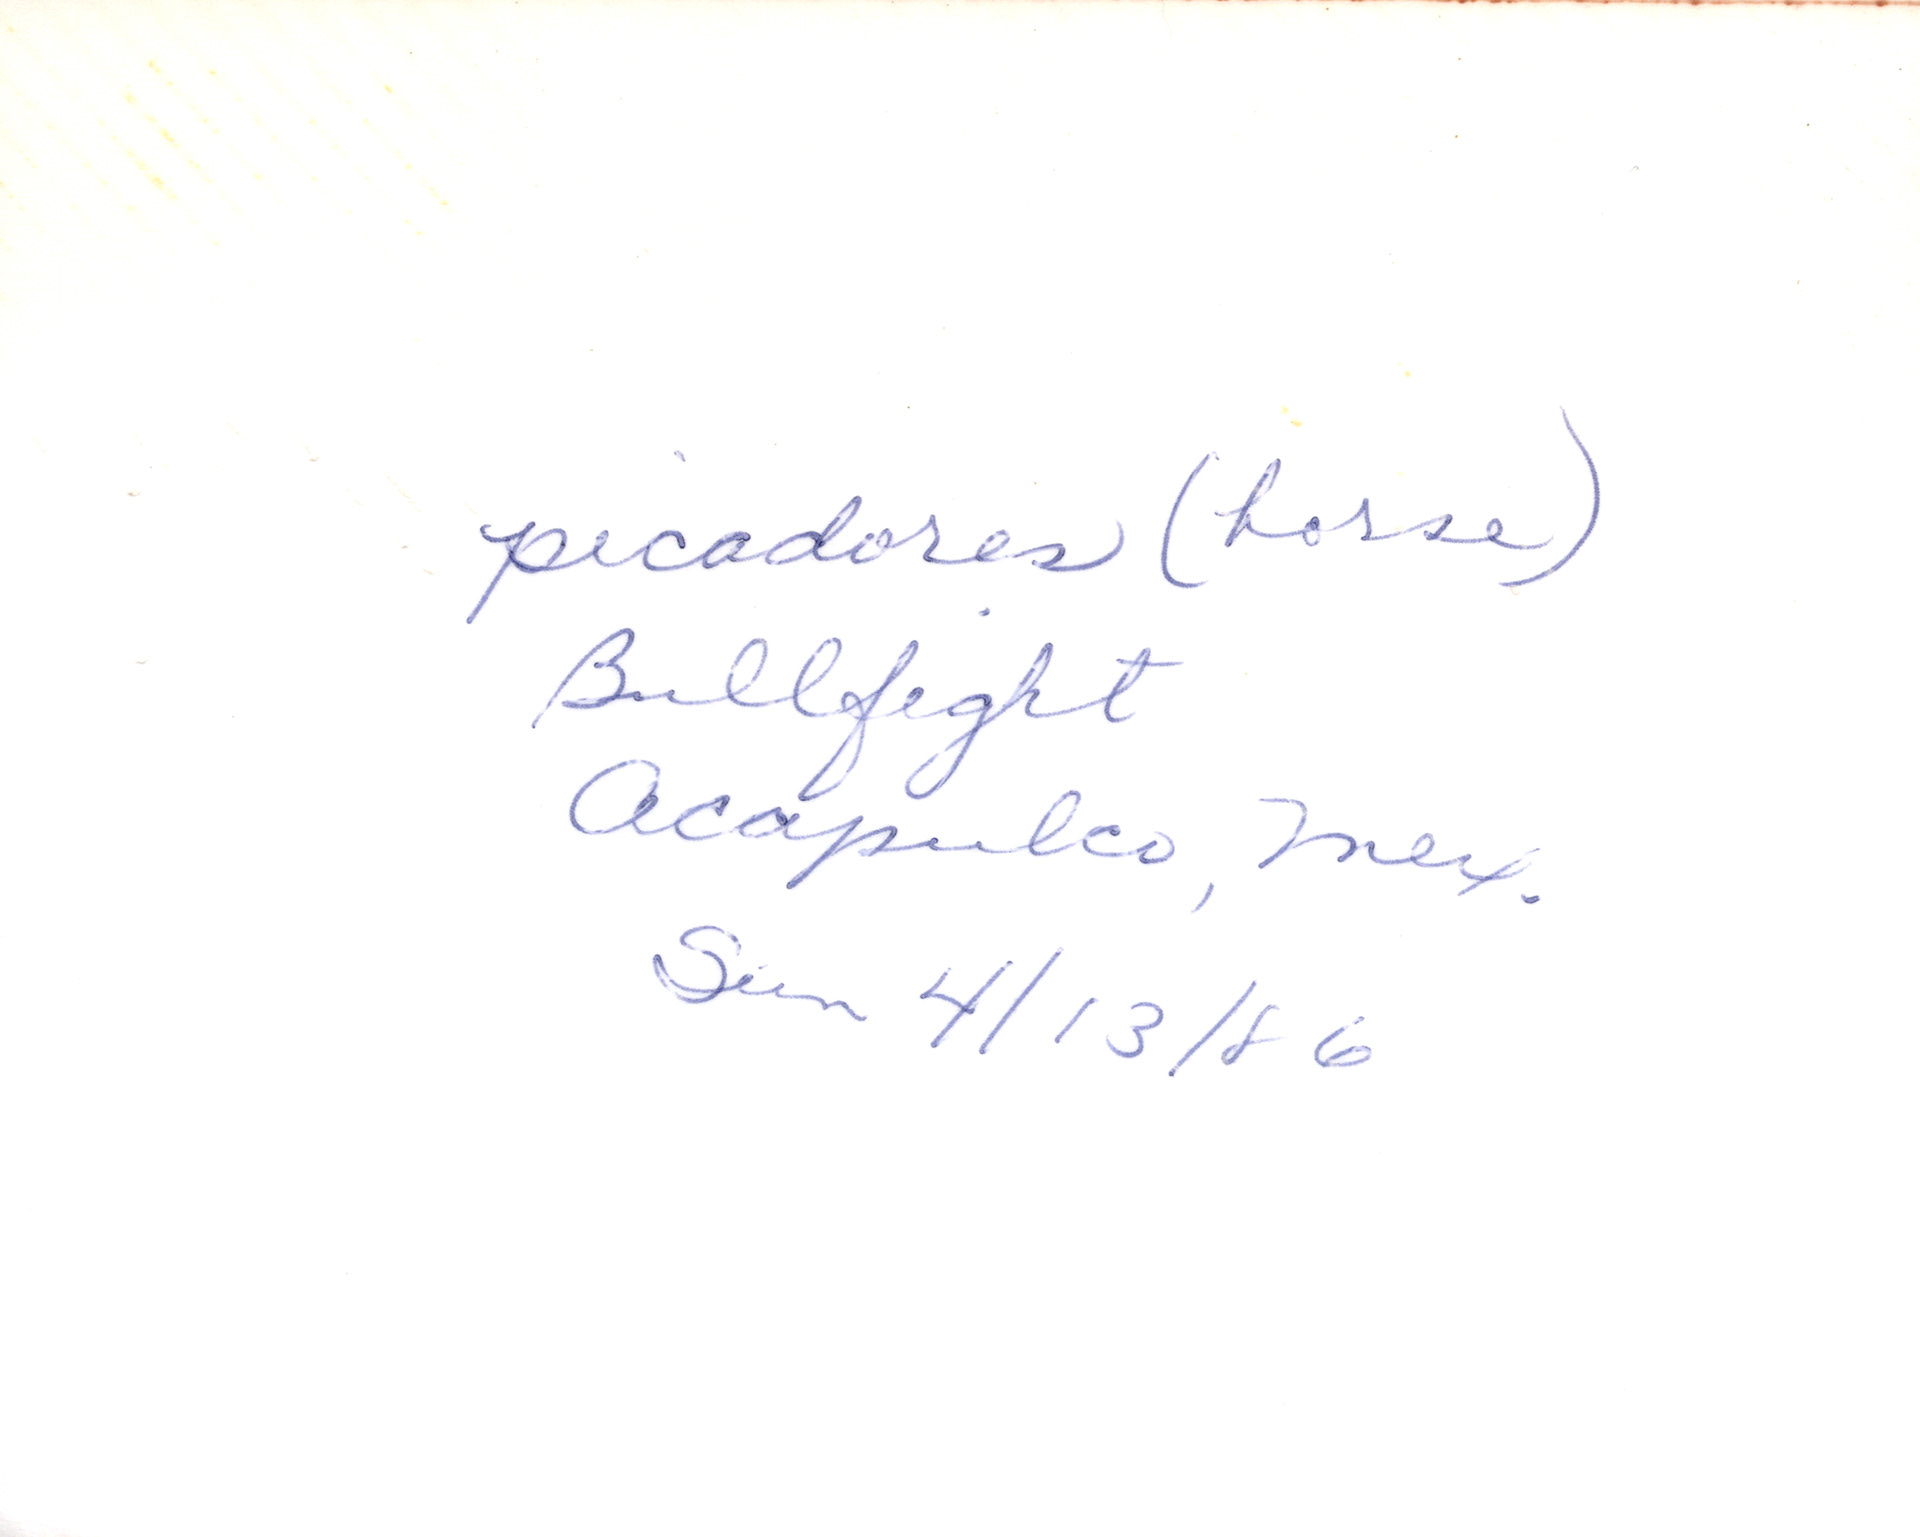 picadores (horse)
Bullfight
Acapulco, Mex.
Sun 4/13/86